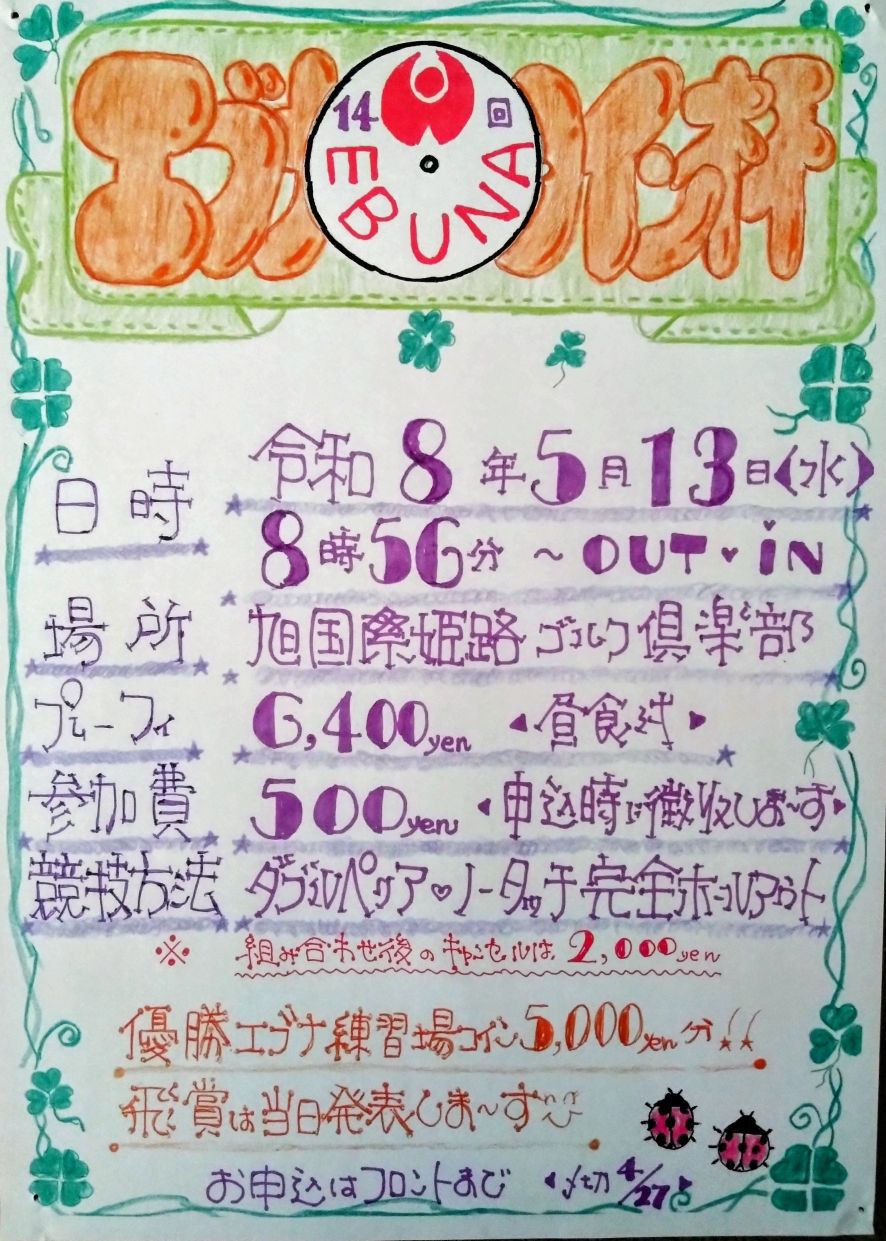 エブナコイン杯
14回
EBUNA
日時 令和8年5月13日(水)
8時56分 ~ OUT・IN
場所 旭国際姫路ゴルフ倶楽部
プレーフィ 6,400yen 昼食付
参加費 500yen 申込時に徴収しま〜す
競技方法 ダブルペリア♥ノータッチ完全ホールアウト
※ 組み合わせ後のキャンセルは2,000yen
優勝エブナ練習場コイン5,000yen分!!
飛賞は当日発表しま〜す
お申込はフロントまで 〆切4/27